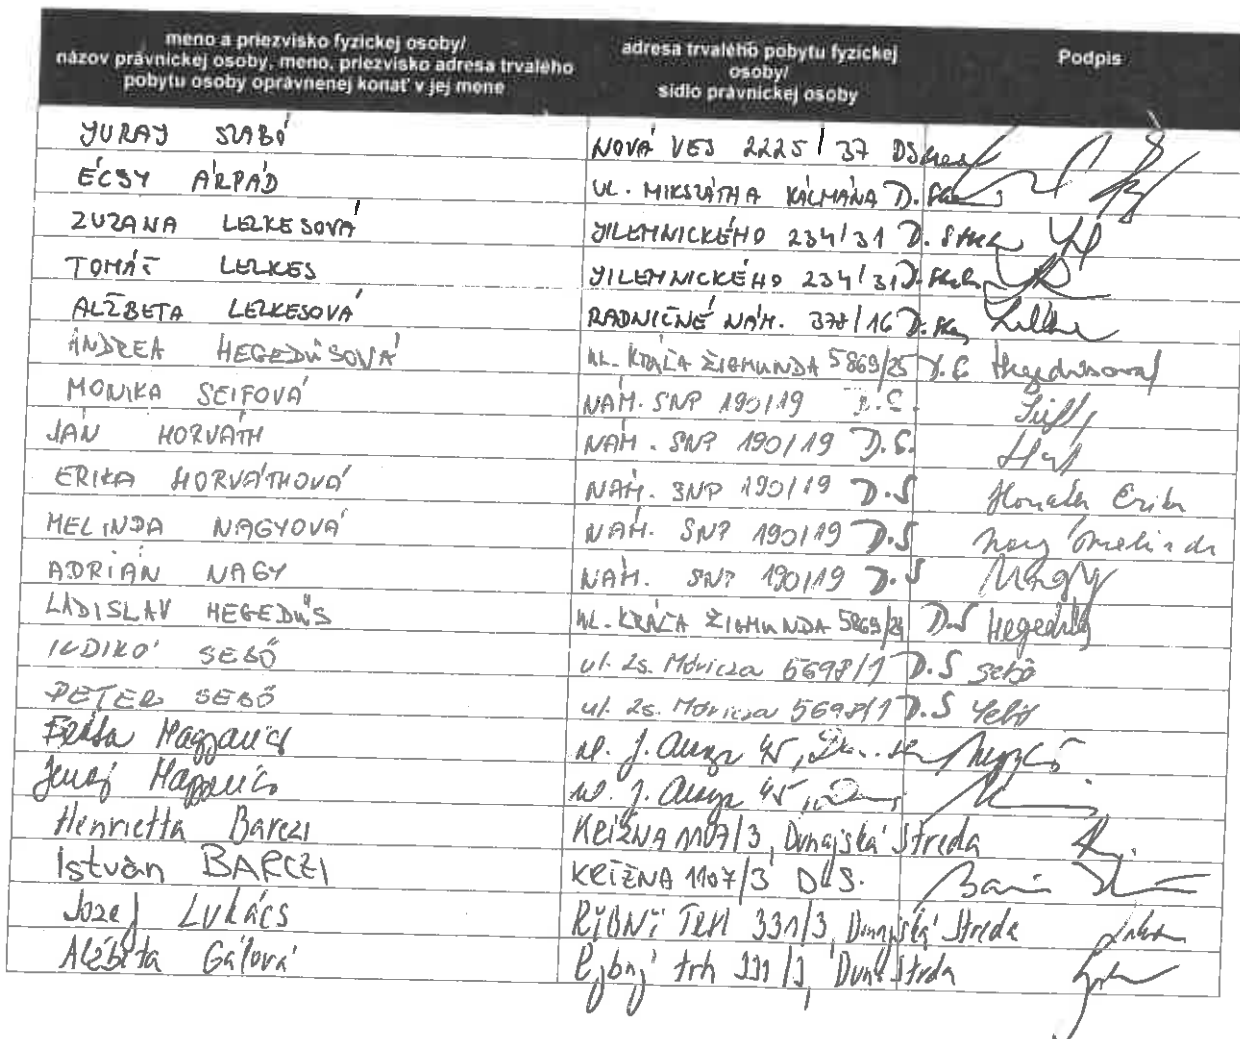 meno a priezvisko fyzickej osoby/
názov právnickej osoby, meno, priezvisko adresa trvalého
pobytu osoby oprávnenej konať v jej mene
adresa trvalého pobytu fyzickej
osoby/
sídlo právnickej osoby
Podpis
JURAJ SZABÓ NOVÁ VES 2225/37 DStreda
ÉCSY ÁRPÁD UL. MIKSZÁTHA KÁLMÁNA D.
ZUZANA LELKESOVÁ JILEMNICKÉHO 234/31 D.
TOMÁŠ LELKES JILEMNICKÉHO 234/31 D.
ALŽBETA LELKESOVÁ RADNIČNÉ NÁM. 378/16 D.
ANDREA HEGEDŰSOVÁ UL. KRÁĽA ŽIGMUNDA 5869/25 D.S Hegedűsová
MONIKA SEIFOVÁ NÁM. SNP 190/19 D.S.
JÁN HORVÁTH NÁM. SNP 190/19 D.S.
ERIKA HORVÁTHOVÁ NÁM. SNP 190/19 D.S Erika
MELINDA NAGYOVÁ NÁM. SNP 190/19 D.S Nagy Melinda
ADRIÁN NAGY NÁM. SNP 190/19 D.S Nagy
LADISLAV HEGEDŰS UL. KRÁĽA ŽIGMUNDA D.S Hegedűs
ILDIKÓ SEBŐ ul. Zs. Móricza 5698/1 D.S Sebő
PETER SEBŐ ul. Zs. Móricza 5698/1 D.S Sebő
ul. J. 45,
ul. J. 45,
Henrietta Barczi KRÍŽNA 1107/3, Dunajská Streda
István BARCZI KRÍŽNA 1107/3 D.S.
Jozef Lukács 331/3, Dunajská Streda
Alžbeta Gálová trh 331/3,